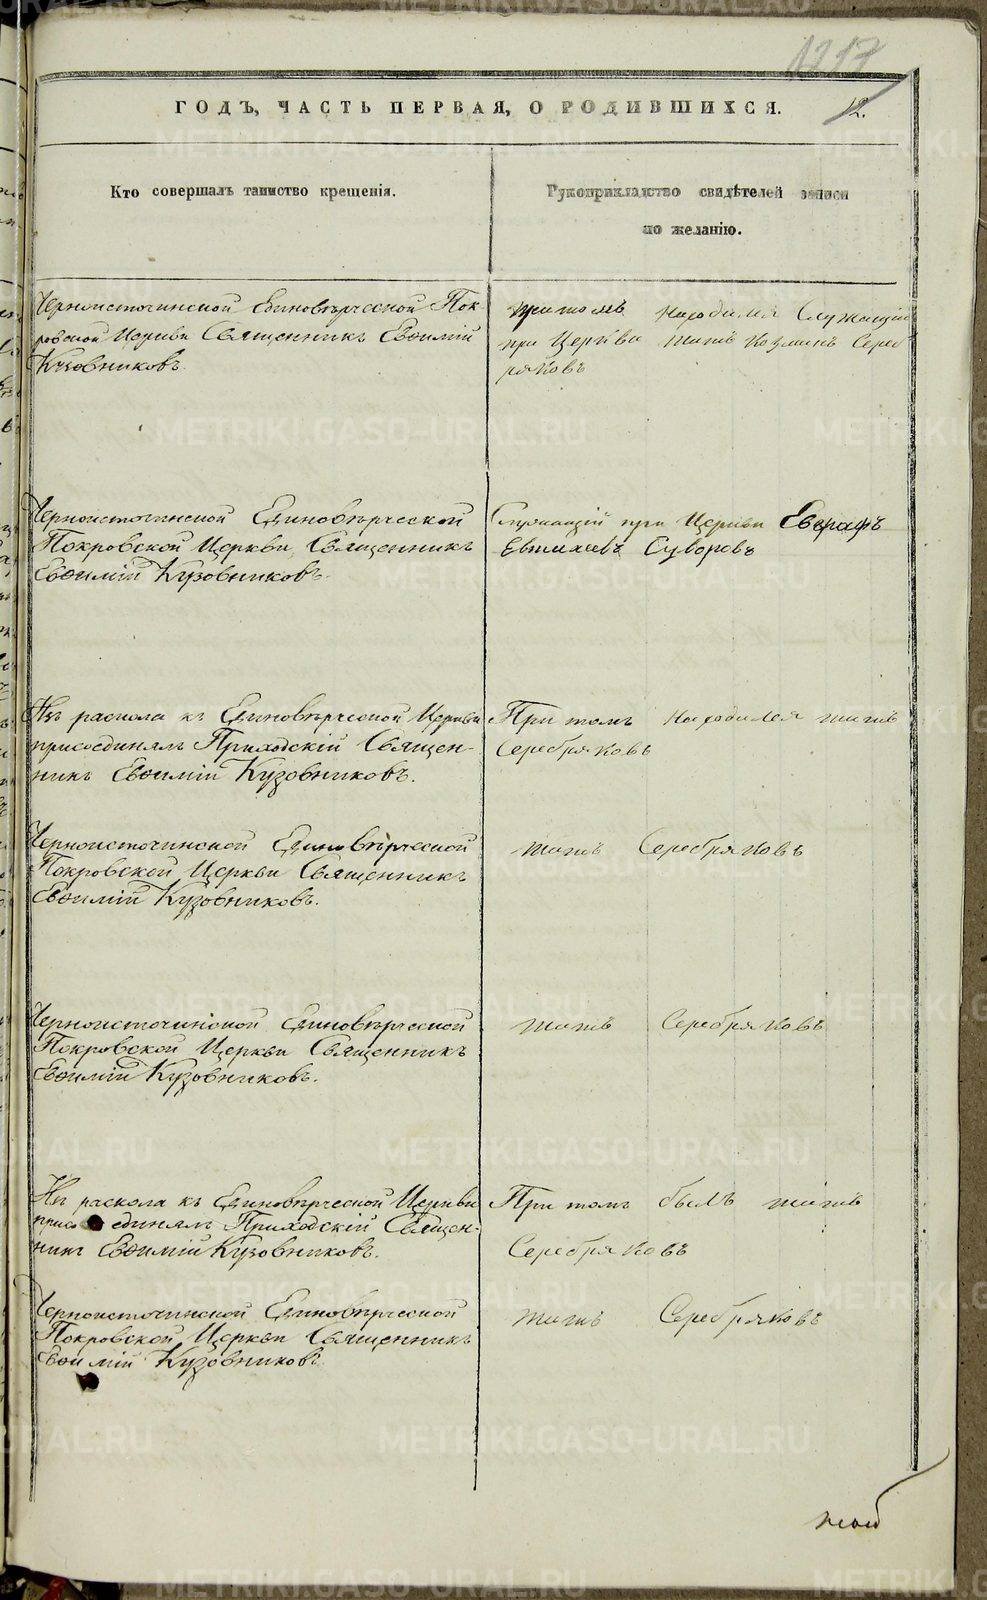 1217
ГОДЪ, ЧАСТЬ ПЕРВАЯ, О РОДИВШИХСЯ.
12.
Кто совершалъ таинство крещенія.
Рукоприкладство свидѣтелей записи
по желанію.
Черноисточинской Единовѣрческой Пок-
ровской Церкви Священникъ Евѳимій
Кузовниковъ.
притомъ находился Служащій
при Церкви Козминъ Сереб
ряковъ
Черноисточинской Единовѣрческой
Покровской Церкви Священникъ
Евѳимій Кузовниковъ.
Служащій при Церкви Евграфъ
Евтихеевъ Суворовъ
Изъ раскола къ Единовѣрческой Церкви
присоединялъ Приходскій Священ-
никъ Евѳимій Кузовниковъ.
При томъ находился
Серебряковъ
Черноисточинской Единовѣрческой
Покровской Церкви Священникъ
Евѳимій Кузовниковъ.
Серебряковъ
Черноисточинской Единовѣрческой
Покровской Церкви Священникъ
Евѳимій Кузовниковъ.
Серебряковъ
Изъ раскола къ Единовѣрческой Церкви
присоединялъ Приходскій Священ-
никъ Евѳимій Кузовниковъ.
При томъ былъ
Серебряковъ
Черноисточинской Единовѣрческой
Покровской Церкви Священникъ
Евѳимій Кузовниковъ.
Серебряковъ
METRIKI.GASO-URAL.RU